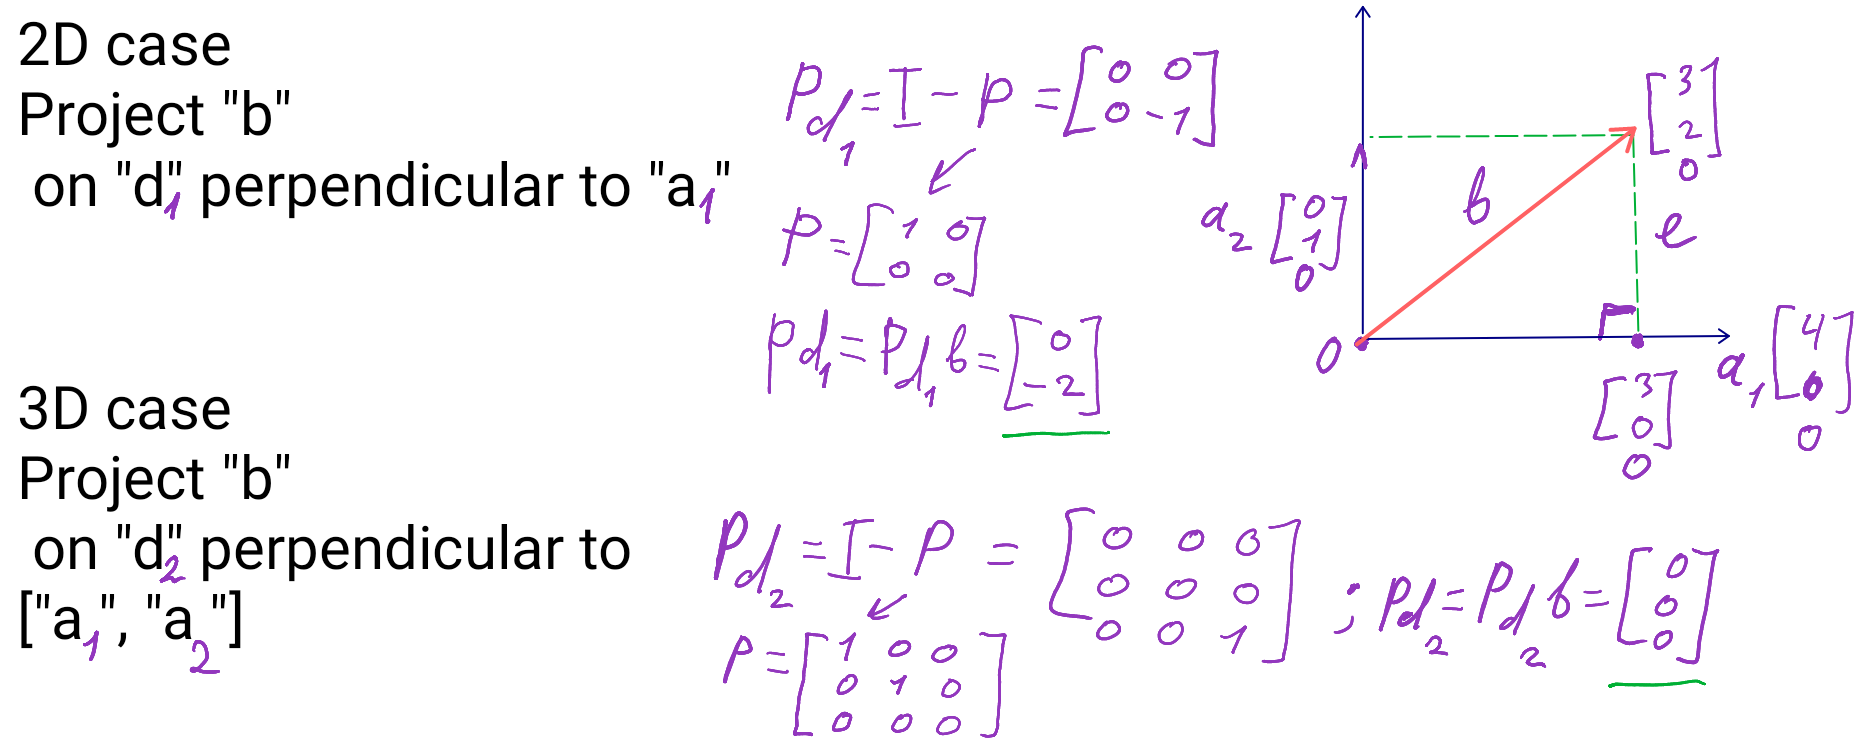 2D case
Project "b"
on "d₁" perpendicular to "a₁"
P_d₁ = I - P = [0 0; 0 -1]
P = [1 0; 0 0]
p_d₁ = P_d₁ b = [0; -2]
a₂ [0; 1; 0]
b
[3; 2; 0]
e
0
[3; 0; 0]
a₁ [4; 0; 0]
3D case
Project "b"
on "d₂" perpendicular to
["a₁", "a₂"]
P_d₂ = I - P = [0 0 0; 0 0 0; 0 0 1] ; p_d₂ = P_d₂ b = [0; 0; 0]
P = [1 0 0; 0 1 0; 0 0 0]